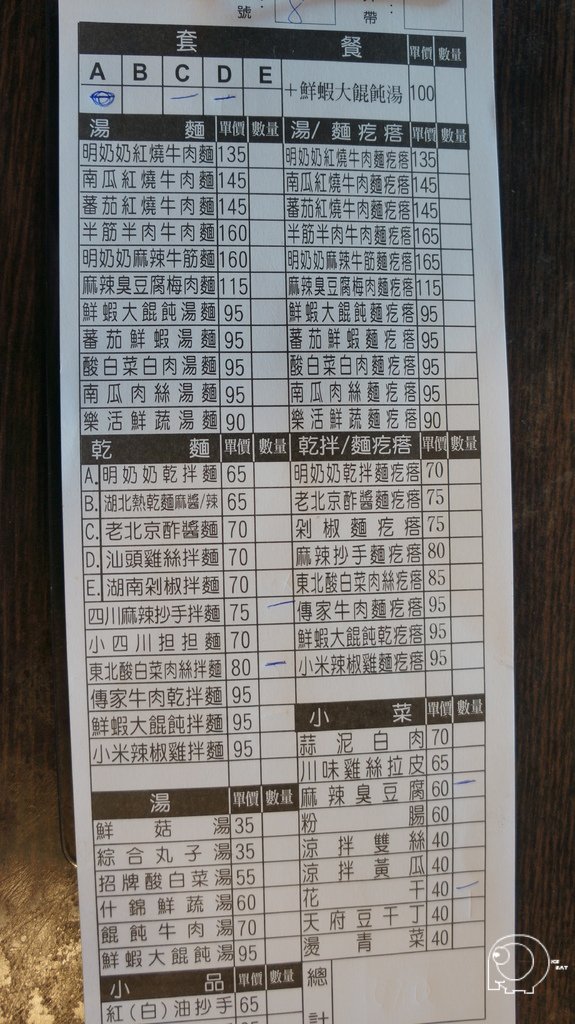 號: 8
帶:
套 餐 單價 數量
A B C D E ＋鮮蝦大餛飩湯 100
湯 麵 單價 數量
明奶奶紅燒牛肉麵 135
南瓜紅燒牛肉麵 145
蕃茄紅燒牛肉麵 145
半筋半肉牛肉麵 160
明奶奶麻辣牛筋麵 160
麻辣臭豆腐梅肉麵 115
鮮蝦大餛飩湯麵 95
蕃茄鮮蝦湯麵 95
酸白菜白肉湯麵 95
南瓜肉絲湯麵 95
樂活鮮蔬湯麵 90
湯/麵疙瘩 單價 數量
明奶奶紅燒牛肉麵疙瘩 135
南瓜紅燒牛肉麵疙瘩 145
蕃茄紅燒牛肉麵疙瘩 145
半筋半肉牛肉麵疙瘩 165
明奶奶麻辣牛筋麵疙瘩 165
麻辣臭豆腐梅肉麵疙瘩 115
鮮蝦大餛飩麵疙瘩 95
蕃茄鮮蝦麵疙瘩 95
酸白菜白肉麵疙瘩 95
南瓜肉絲麵疙瘩 95
樂活鮮蔬麵疙瘩 90
乾 麵 單價 數量
A. 明奶奶乾拌麵 65
B. 湖北熱乾麵麻醬/辣 65
C. 老北京酢醬麵 70
D. 汕頭雞絲拌麵 70
E. 湖南剁椒拌麵 70
四川麻辣抄手拌麵 75
小四川担担麵 70
東北酸白菜肉絲拌麵 80
傳家牛肉乾拌麵 95
鮮蝦大餛飩拌麵 95
小米辣椒雞拌麵 95
乾拌/麵疙瘩 單價 數量
明奶奶乾拌麵疙瘩 70
老北京酢醬麵疙瘩 75
剁椒麵疙瘩 75
麻辣抄手麵疙瘩 80
東北酸白菜肉絲疙瘩 85
傳家牛肉麵疙瘩 95
鮮蝦大餛飩乾疙瘩 95
小米辣椒雞麵疙瘩 95
小 菜 單價 數量
蒜泥白肉 70
川味雞絲拉皮 65
麻辣臭豆腐 60
粉腸 60
涼拌雙絲 40
涼拌黃瓜 40
花干 40
天府豆干丁 40
燙青菜 40
湯 單價 數量
鮮菇湯 35
綜合丸子湯 35
招牌酸白菜湯 55
什錦鮮蔬湯 60
餛飩牛肉湯 70
鮮蝦大餛飩湯 95
小 品 單價 數量
紅(白)油抄手 65
總計
ICE EAT